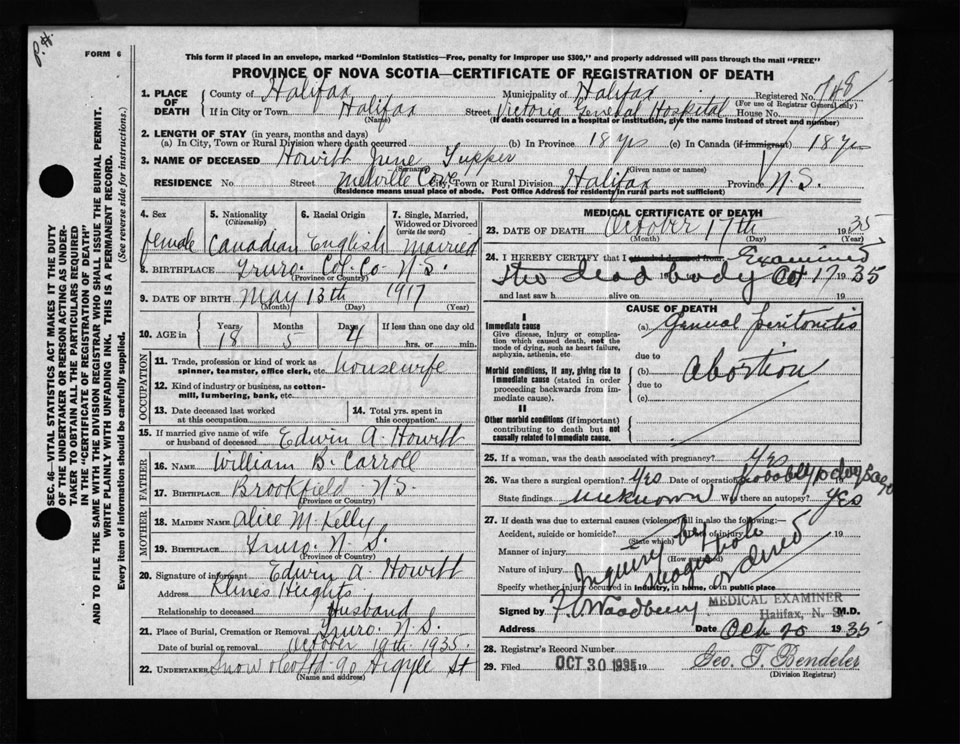 P.H.
FORM 6
This form if placed in an envelope, marked "Dominion Statistics—Free, penalty for improper use $300," and properly addressed will pass through the mail "FREE"
PROVINCE OF NOVA SCOTIA—CERTIFICATE OF REGISTRATION OF DEATH
SEC. 46—VITAL STATISTICS ACT MAKES IT THE DUTY
OF THE UNDERTAKER OR PERSON ACTING AS UNDER-
TAKER TO OBTAIN ALL THE PARTICULARS REQUIRED
IN THE "CERTIFICATE OF REGISTRATION OF DEATH"
AND TO FILE THE SAME WITH THE DIVISION REGISTRAR WHO SHALL ISSUE THE BURIAL PERMIT.
WRITE PLAINLY WITH UNFADING INK. THIS IS A PERMANENT RECORD.
Every item of information should be carefully supplied. (See reverse side for instructions.)
1. PLACE OF DEATH
County of Halifax Municipality of Halifax Registered No. 748
(For use of Registrar General only)
If in City or Town Halifax Street Victoria General Hospital House No.
(Name) (If death occurred in a hospital or institution, give the name instead of street and number)
2. LENGTH OF STAY (in years, months and days)
(a) In City, Town or Rural Division where death occurred (b) In Province 18 yrs (c) In Canada (if immigrant) 18 yrs
3. NAME OF DECEASED Howitt June Tupper
(Surname) (Given name or names)
RESIDENCE No. Street Melville Cove City, Town or Rural Division Halifax Province N.S.
(Residence means usual place of abode. Post Office Address for residents in rural parts not sufficient)
4. Sex 5. Nationality 6. Racial Origin 7. Single, Married,
(Citizenship) Widowed or Divorced
(write the word)
female Canadian English Married
8. BIRTHPLACE Truro. Col. Co. N.S.
(Province or County)
9. DATE OF BIRTH May 13th 1917
(Month) (Day) (Year)
10. AGE in Years Months Days If less than one day old
18 5 4 hrs. or min.
OCCUPATION
11. Trade, profession or kind of work as
spinner, teamster, office clerk, etc. housewife
12. Kind of industry or business, as cotton-
mill, lumbering, bank, etc.
13. Date deceased last worked
at this occupation
14. Total yrs. spent in
this occupation
15. If married give name of wife
or husband of deceased Edwin A. Howitt
FATHER
16. Name William B. Carroll
17. Birthplace Brookfield N.S.
(Province or County)
MOTHER
18. MAIDEN NAME Alice M. Kelly
19. BIRTHPLACE Truro. N.S.
(Province or County)
20. Signature of informant Edwin A. Howitt
Address Klines Heights
Relationship to deceased Husband
21. Place of Burial, Cremation or Removal Truro. N.S.
Date of burial or removal October 19th 1935.
22. UNDERTAKER Snow & Co Ltd 90 Argyle St
(Name and address)
MEDICAL CERTIFICATE OF DEATH
23. DATE OF DEATH October 17th 1935
(Month) (Day) (Year)
24. I HEREBY CERTIFY that I attended deceased from Examined
the dead body Oct 17 1935
and last saw h alive on 19
CAUSE OF DEATH
I
Immediate cause
Give disease, injury or complica-
tion which caused death, not the
mode of dying, such as heart failure,
asphyxia, asthenia, etc.
(a) General peritonitis
due to
Morbid conditions, if any, giving rise to
immediate cause (stated in order
proceeding backwards from im-
mediate cause).
(b) Abortion
due to
(c)
II
Other morbid conditions (if important)
contributing to death but not
causally related to immediate cause.
25. If a woman, was the death associated with pregnancy? Yes
26. Was there a surgical operation? Yes Date of operation probably 10 days ago
State findings unknown Was there an autopsy? Yes
27. If death was due to external causes (violence) fill in also the following:—
Accident, suicide or homicide? Date of injury 19
(State which)
Manner of injury
(How sustained)
Nature of injury
Specify whether injury occurred in industry, in home, or in public place
Inquiry by
Magistrate
ordered
Signed by F. V. Woodbury MEDICAL EXAMINER M.D.
Halifax, N. S.
Address Date Oct 20 1935
28. Registrar's Record Number
29. Filed OCT 30 1935 19 Geo. T. Bendeler
(Division Registrar)